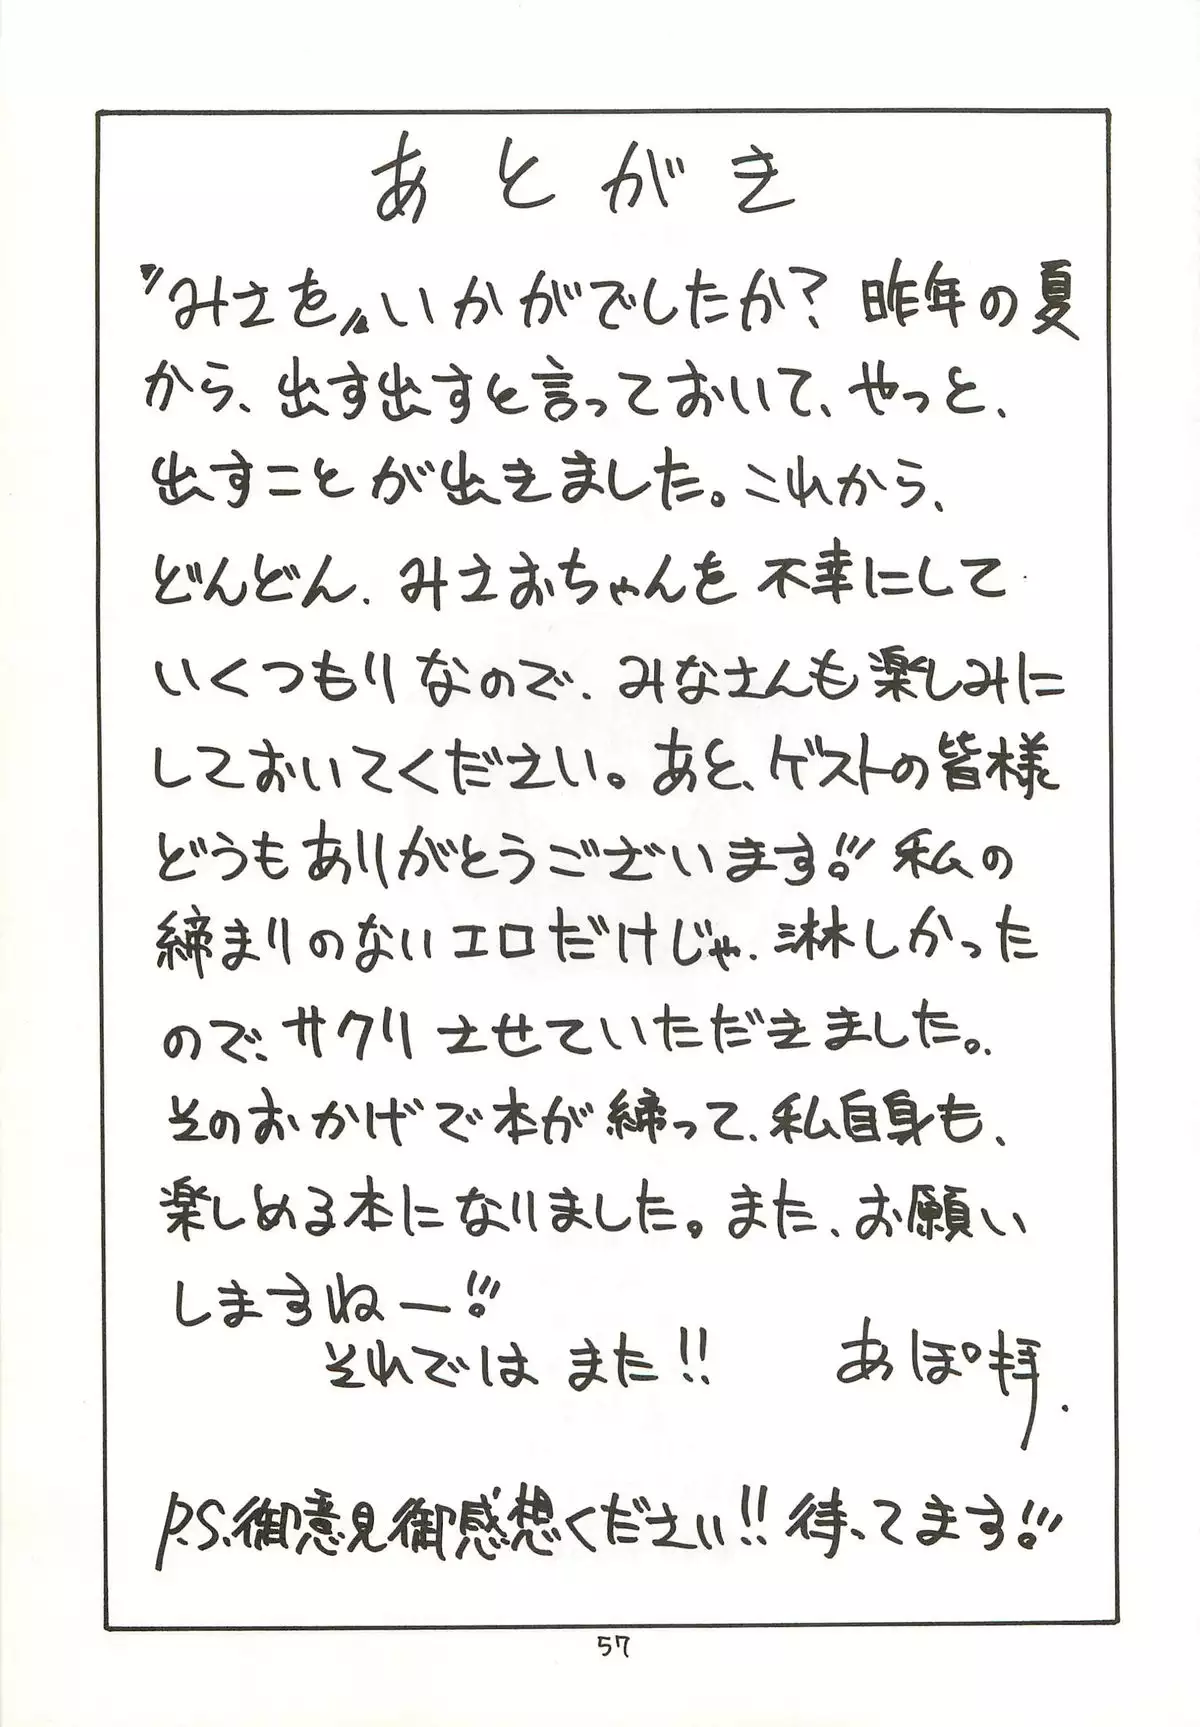 あとがき
〝みさを〟いかがでしたか？昨年の夏
から、出す出すと言っておいて、やっと、
出すことが出きました。これから、
どんどん、みさおちゃんを不幸にして
いくつもりなので、みなさんも楽しみに
しておいてください。あと、ゲストの皆様
どうもありがとうございます!!!私の
締まりのないエロだけじゃ、淋しかった
ので、サクリさせていただきました。
そのおかげで本が締って、私自身も、
楽しめる本になりました。また、お願い
しますねー!!!
それではまた!!
あぽ拝.
P.S.御意見御感想ください!!待ってます!!!
57